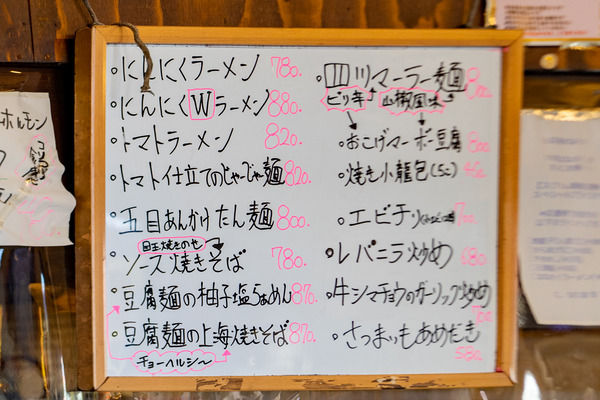 ・にんにくラーメン 780.
・にんにくWラーメン 880.
・トマトラーメン 820.
・トマト仕立てのじゃーじゃ麺 820.
・五目あんかけたん麺 800.
目玉焼きのせ
・ソース焼きそば 780.
・豆腐麺の柚子塩らぁめん 870.
・豆腐麺の上海焼きそば 870.
チョーヘルシー
・四川マーラー麺
ピリ辛 山椒風味
・おこげマーボー豆腐 800
・焼き小龍包(5コ)
・エビチリ 700
・レバニラ炒め 680
・牛シマチョウのガーリック炒め
780
・さつまいもあめだき
580.
ホルモン